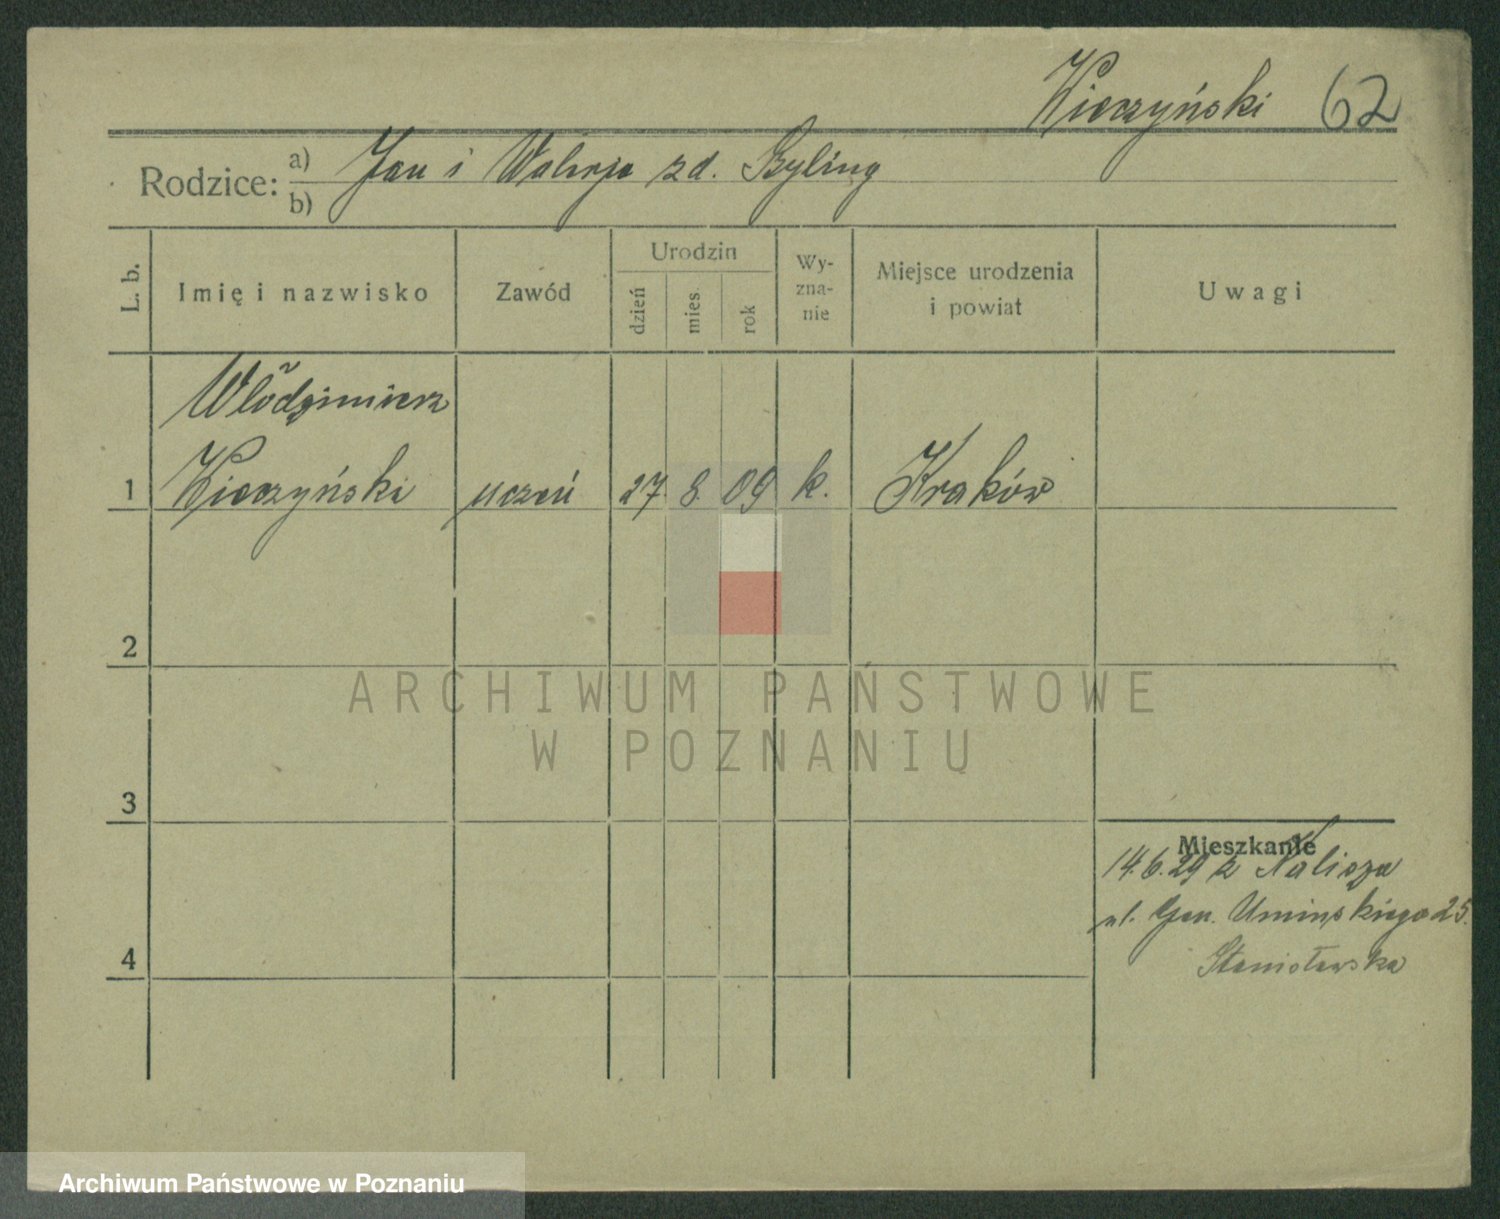 Wieczyński 62
Rodzice: a) Jan i Walerja zd. Byling
b)
L. b. Imię i nazwisko Zawód Urodzin dzień mies. rok Wy-zna-nie Miejsce urodzenia i powiat Uwagi
Włodzimierz
1 Wieczyński uczeń 27. 8. 09 k. Kraków
2
ARCHIWUM PAŃSTWOWE
W POZNANIU
3
Mieszkanie
14.6.29 z Kalisza
ul. Gen. Umińskiego 25.
4
Stanisławska
Archiwum Państwowe w Poznaniu